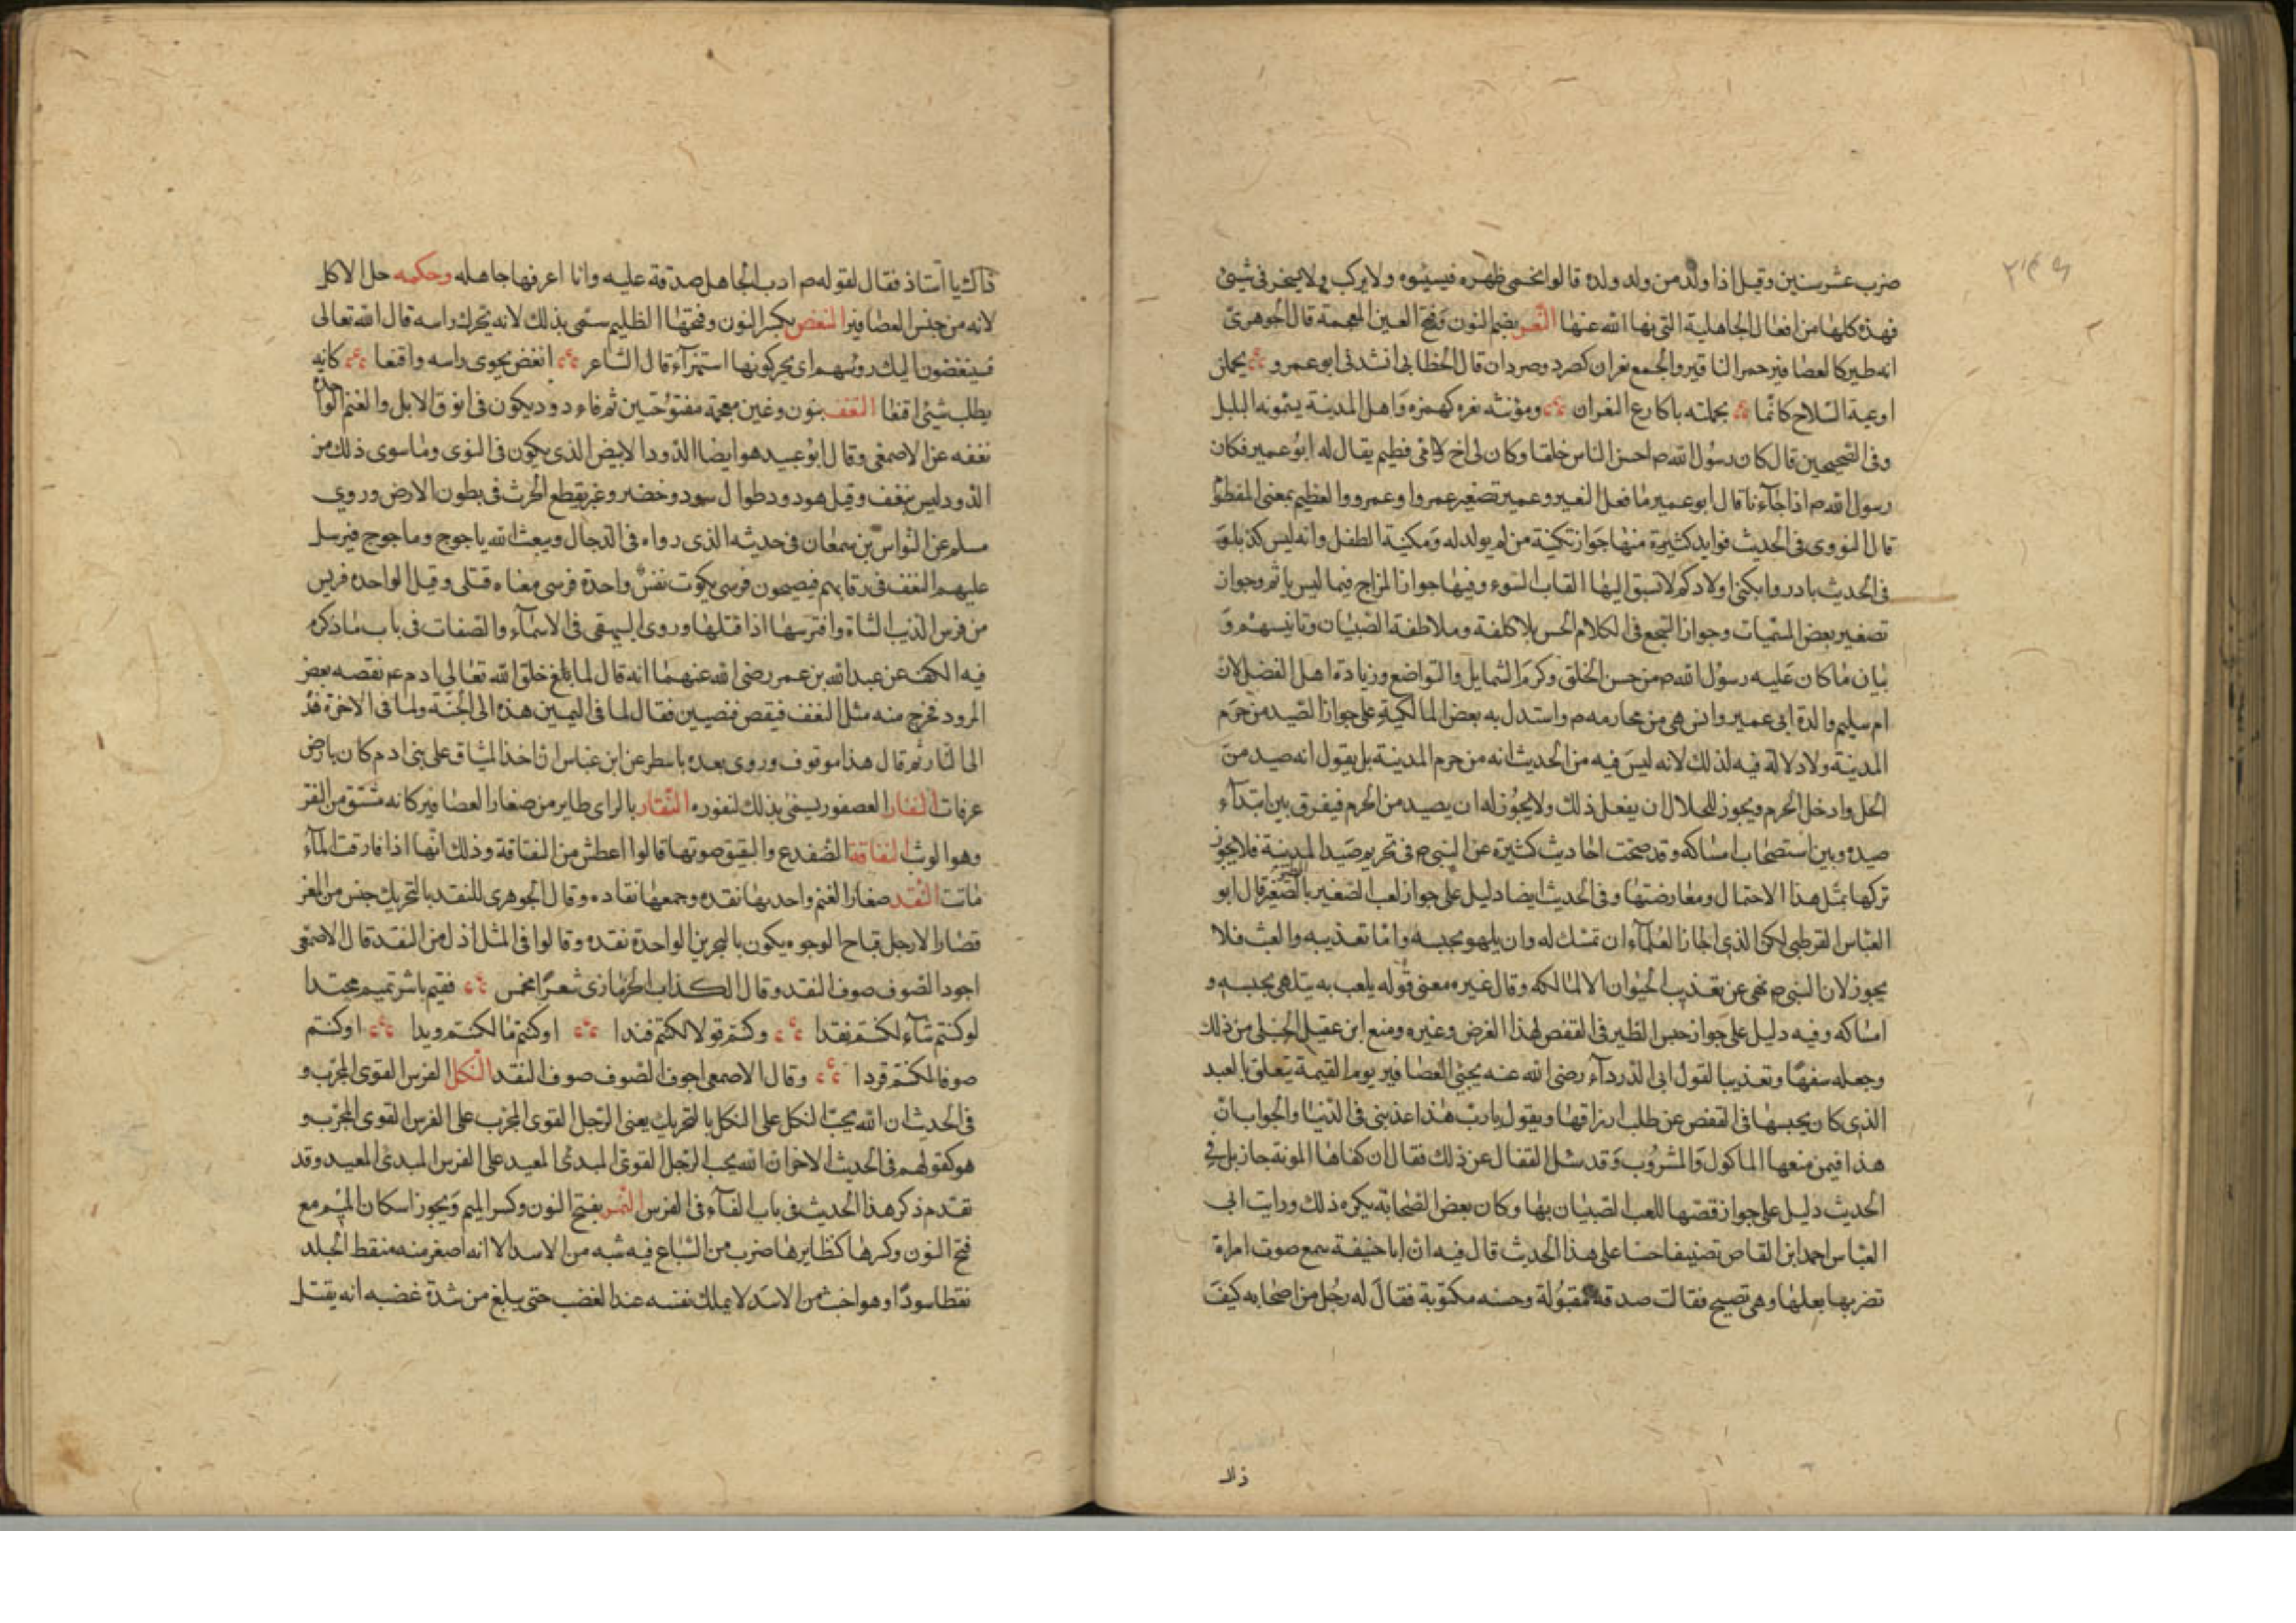 ضرب عشر سنين وقيل اذا ولد من ولد ولده قالوا نحمى ظهره فيسيبوه ولا يركب ولا يسخر فى شيئ
فهذه كلها من افعال الجاهلية التى نهانا الله عنها النغر بضم النون وفتح الغين المعجمة قال الجوهرى
انه طير كالعصافير حمر المناقير والجمع نغران كصرد وصردان قال الخطابى انشدنى ابو عمرو يحملن
اوعية السلاح كانما يحملنه باكارع النغران ومؤنثه نغره كهمزه واهل المدينة يسمونه البلبل
وفى الصحيحين قال كان رسول الله ص احسن الناس خلقا وكان لى اخ لامى فطيم يقال له ابو عمير فكان
رسول الله ص اذا جاءنا قال ابو عمير ما فعل النغير وعمير تصغير عمر او عمرو والفطيم بمعنى المفطوم
قال النووى فى الحديث فوايد كثيرة منها جواز تكنية من لم يولد له وتكنية الطفل وانه ليس كذبا و
فى الحديث بادروا بكنى اولادكم لا تسبق اليها القاب السوء وفيها جواز المزاح فيما ليس باثم وجواز
تصغير بعض المسميات وجواز السجع فى الكلام الحسن بلا كلفة وملاطفة الصبيان وتانيسهم و
بيان ما كان عليه رسول الله ص من حسن الخلق وكرم الشمايل والتواضع وزيادة اهل الفضل لان
ام سليم والدة ابى عمير وانس هى من محارمه ص واستدل به بعض المالكية على جواز الصيد من حرم
المدينة ولا دلالة فيه لذلك لانه ليس فيه من الحديث انه من حرم المدينة بل يقول انه صيد من
الحل وادخل الحرم ويجوز للحلال ان يفعل ذلك ولا يجوز له ان يصيد من الحرم فيفرق بين ابتداء
صيده وبين استصحاب امساكه وقد صحت احاديث كثيرة عن النبى ص فى تحريم صيد المدينة فلا يجوز
تركها بمثل هذا الاحتمال ومعارضتها وفى الحديث ايضا دليل على جواز لعب الصغير بالطير الصغير قال ابو
العباس القرطبى لكن الذى اجاز العلماء ان تمسك له وان يلهو بحبسه واما تعذيبه والعبث فلا
يجوز لان النبى ص نهى عن تعذيب الحيوان الا لماكله وقال غيره معنى قوله يلعب به يتلهى بحبسه و
امساكه وفيه دليل على جواز حبس الطير فى القفص لهذا الغرض وغيره ومنع ابن عقيل الحنبلى من ذلك
وجعله سفها وتعذيبا لقول ابى الدرداء رضى الله عنه يجيئ العصافير يوم القيمة يتعلق بالعبد
الذى كان يحبسها فى القفص عن طلب ارزاقها ويقول يارب هذا عذبنى فى الدنيا والجواب ان
هذا فيمن منعها الماكول والمشروب وقد سئل القفال عن ذلك فقال ان كفاها المونة جاز بل فى
الحديث دليل على جواز قصها للعب الصبيان بها وكان بعض الصحابة يكره ذلك ورايت ابى
العباس احمد ابن القاص تصنيفا حسنا على هذا الحديث قال فيه ان ابا حنيفة سمع صوت امراة
تضربها بعلها وهى تصيح فقالت صدقة مقبولة وحسنه مكتوبة فقال له رجل من اصحابه كيف
ذاك يا استاذ فقال لقوله ص ادب الجاهل صدقة عليه وانا اعرفها جاهله وحكمه حل الاكل
لانه من جنس العصافير النغض بكسر النون وفتحها الظليم سمى بذلك لانه يحرك راسه قال الله تعالى
فسينغضون اليك روسهم اى يحركونها استهزاء قال الشاعر انغض نحوى راسه واقنعا كانه
يطلب شيئ اقنعا النغف بنون وغين معجمة مفتوحتين ثم فاء دود يكون فى انوف الابل والغنم الواحدة
نغفه عن الاصمعى وقال ابو عبيد هو ايضا الدود الابيض الذى يكون فى النوى وما سوى ذلك من
الدود ليس بنغف وقيل هو دود طوال سود وخضر وغبر يقطع الحرث فى بطون الارض وروى
مسلم عن النواس بن سمعان فى حديثه الذى رواه فى الدجال ويبعث الله ياجوج وماجوج فيرسل
عليهم النغف فى رقابهم فيصبحون فرسى كموت نفس واحدة فرسى معناه قتلى وقيل الواحد فريس
من فرس الذيب الشاة وافترسها اذا قتلها وروى البيهقى فى الاسماء والصفات فى باب ما ذكر
فيه الكف عن عبد الله بن عمر رضى الله عنهما انه قال لما بلغ خلق الله تعالى ادم عم نقصه بعض
المرود فخرج منه مثل النغف فقبض قبضتين فقال لما فى اليمين هذه الى الجنة ولما فى الاخرة هذه
الى النار ثم قال هذا موقوف وروى بعده باسطر عن ابن عباس ان اخذ الميثاق على بنى ادم كان بارض
عرفات النفار العصفور يسمى بذلك لنفوره النقار بالراى طاير من صغار العصافير كانه مشتق من النقر
وهو الوثب النقاقة الضفدع والنقيق صوتها قالوا اعطش من النقاقة وذلك انها اذا فارقت الماء
ماتت النقد صغار الغنم واحدتها نقده وجمعها نقاده وقال الجوهرى للنقد بالتحريك جنس من المعز
قصار الارجل قباح الوجوه يكون بالبحرين الواحدة نقده وقالوا فى المثل اذل من النقد قال الاصمعى
اجود الصوف صوف النقد وقال الكذاب الحرمازى شعرا مخمس فقيم يا شر تميم محتدا
لو كنتم شاء لكنتم نقدا وكنتم قولا لكنتم فندا او كنتم ماء لكنتم زبدا او كنتم
صوفا لكنتم قردا وقال الاصمعى اجود الصوف صوف النقد النكل الفرس القوى المجرب و
فى الحديث ان الله يحب النكل على النكل بالتحريك يعنى الرجل القوى المجرب على الفرس القوى المجرب و
هو كقولهم فى الحديث الاخر ان الله يحب الرجل القوى المبدئ المعيد على الفرس المبدئ المعيد وقد
تقدم ذكر هذا الحديث فى باب الفاء فى الفرس النمر بفتح النون وكسر الميم ويجوز اسكان الميم مع
فتح النون وكسرها كنظايرها ضرب من السباع فيه شبه من الاسد الا انه اصغر منه منقط الجلد
نقطا سودا وهو اخبث من الاسد لا يملك نفسه عند الغضب حتى يبلغ من شدة غضبه انه يقتل